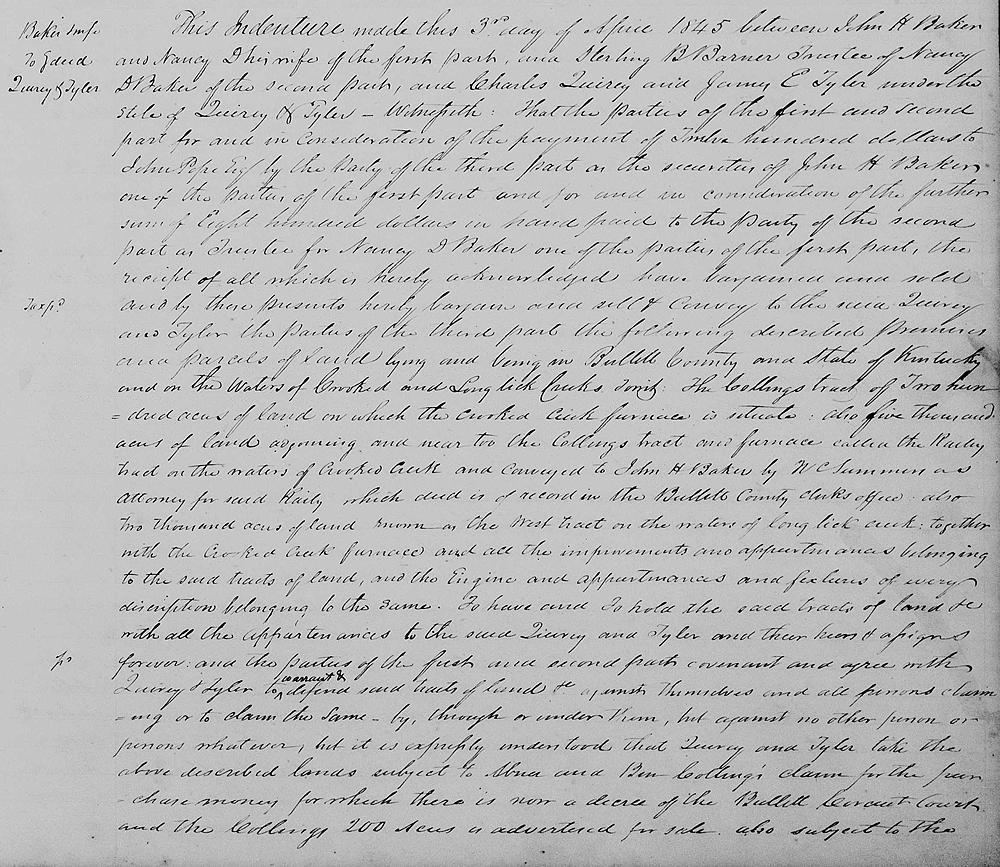 Baker & wife
To } deed
Quirey & Tyler
This Indenture made this 3rd day of April 1845 between John H Baker
and Nancy D his wife of the first part, and Sterling B Barner Trustee of Nancy
D Baker of the second part, and Charles Quirey and James E Tyler under the
state of Quirey & Tyler – Witnesseth: That the parties of the first and second
part for and in consideration of the payment of Twelve hundred dollars to
John Pope Esq by the Party of the third part as the securities of John H Baker
one of the parties of the first part and for and in consideration of the further
sum of Eight hundred dollars in hand paid to the party of the second
part as Trustee for Nancy D Baker one of the parties of the first part, the
receipt of all which is hereby acknowledged have bargained and sold
Tax pd
and by these presents hereby bargain and sell & Convey to the said Quirey
and Tyler the parties of the third part the following described premises
and parcels of Land lying and being in Bullitt County and State of Kentucky
and on the Waters of Crooked and Long lick Creeks towit: The Collings tract of Two hun
=dred acres of land on which the crooked creek furnace is situate: also five thousand
acres of land adjoining and near too the Collings tract and furnace called the Raily
tract on the waters of Crooked Creek and conveyed to John H Baker by W C Summers as
attorney for said Raily which deed is of record in the Bullitt County Clerks office: also
two thousand acres of land known as the West tract on the waters of long lick creek: together
with the Crooked Creek furnace and all the improvements and appurtenances belonging
to the said tracts of land, and the Engine and appurtenances and fixtures of every
discription belonging to the same. To have and To hold the said tracts of land &c
with all the appurtenances to the said Quirey and Tyler and their heirs & assigns
forever: and the parties of the first and second part covenant and agree with
Quirey & Tyler to warrant & defend said tracts of land &c against themselves and all persons claim
=ing or to claim the same – by, through or under them, but against no other person or
persons whatever, but it is expressly understood that Quirey and Tyler take the
above described lands subject to Abner and Ben Colling's claim for the pur
-chase money for which there is now a decree of the Bullitt Circuit Court
and the Collings 200 Acres is advertised for sale. also subject to the